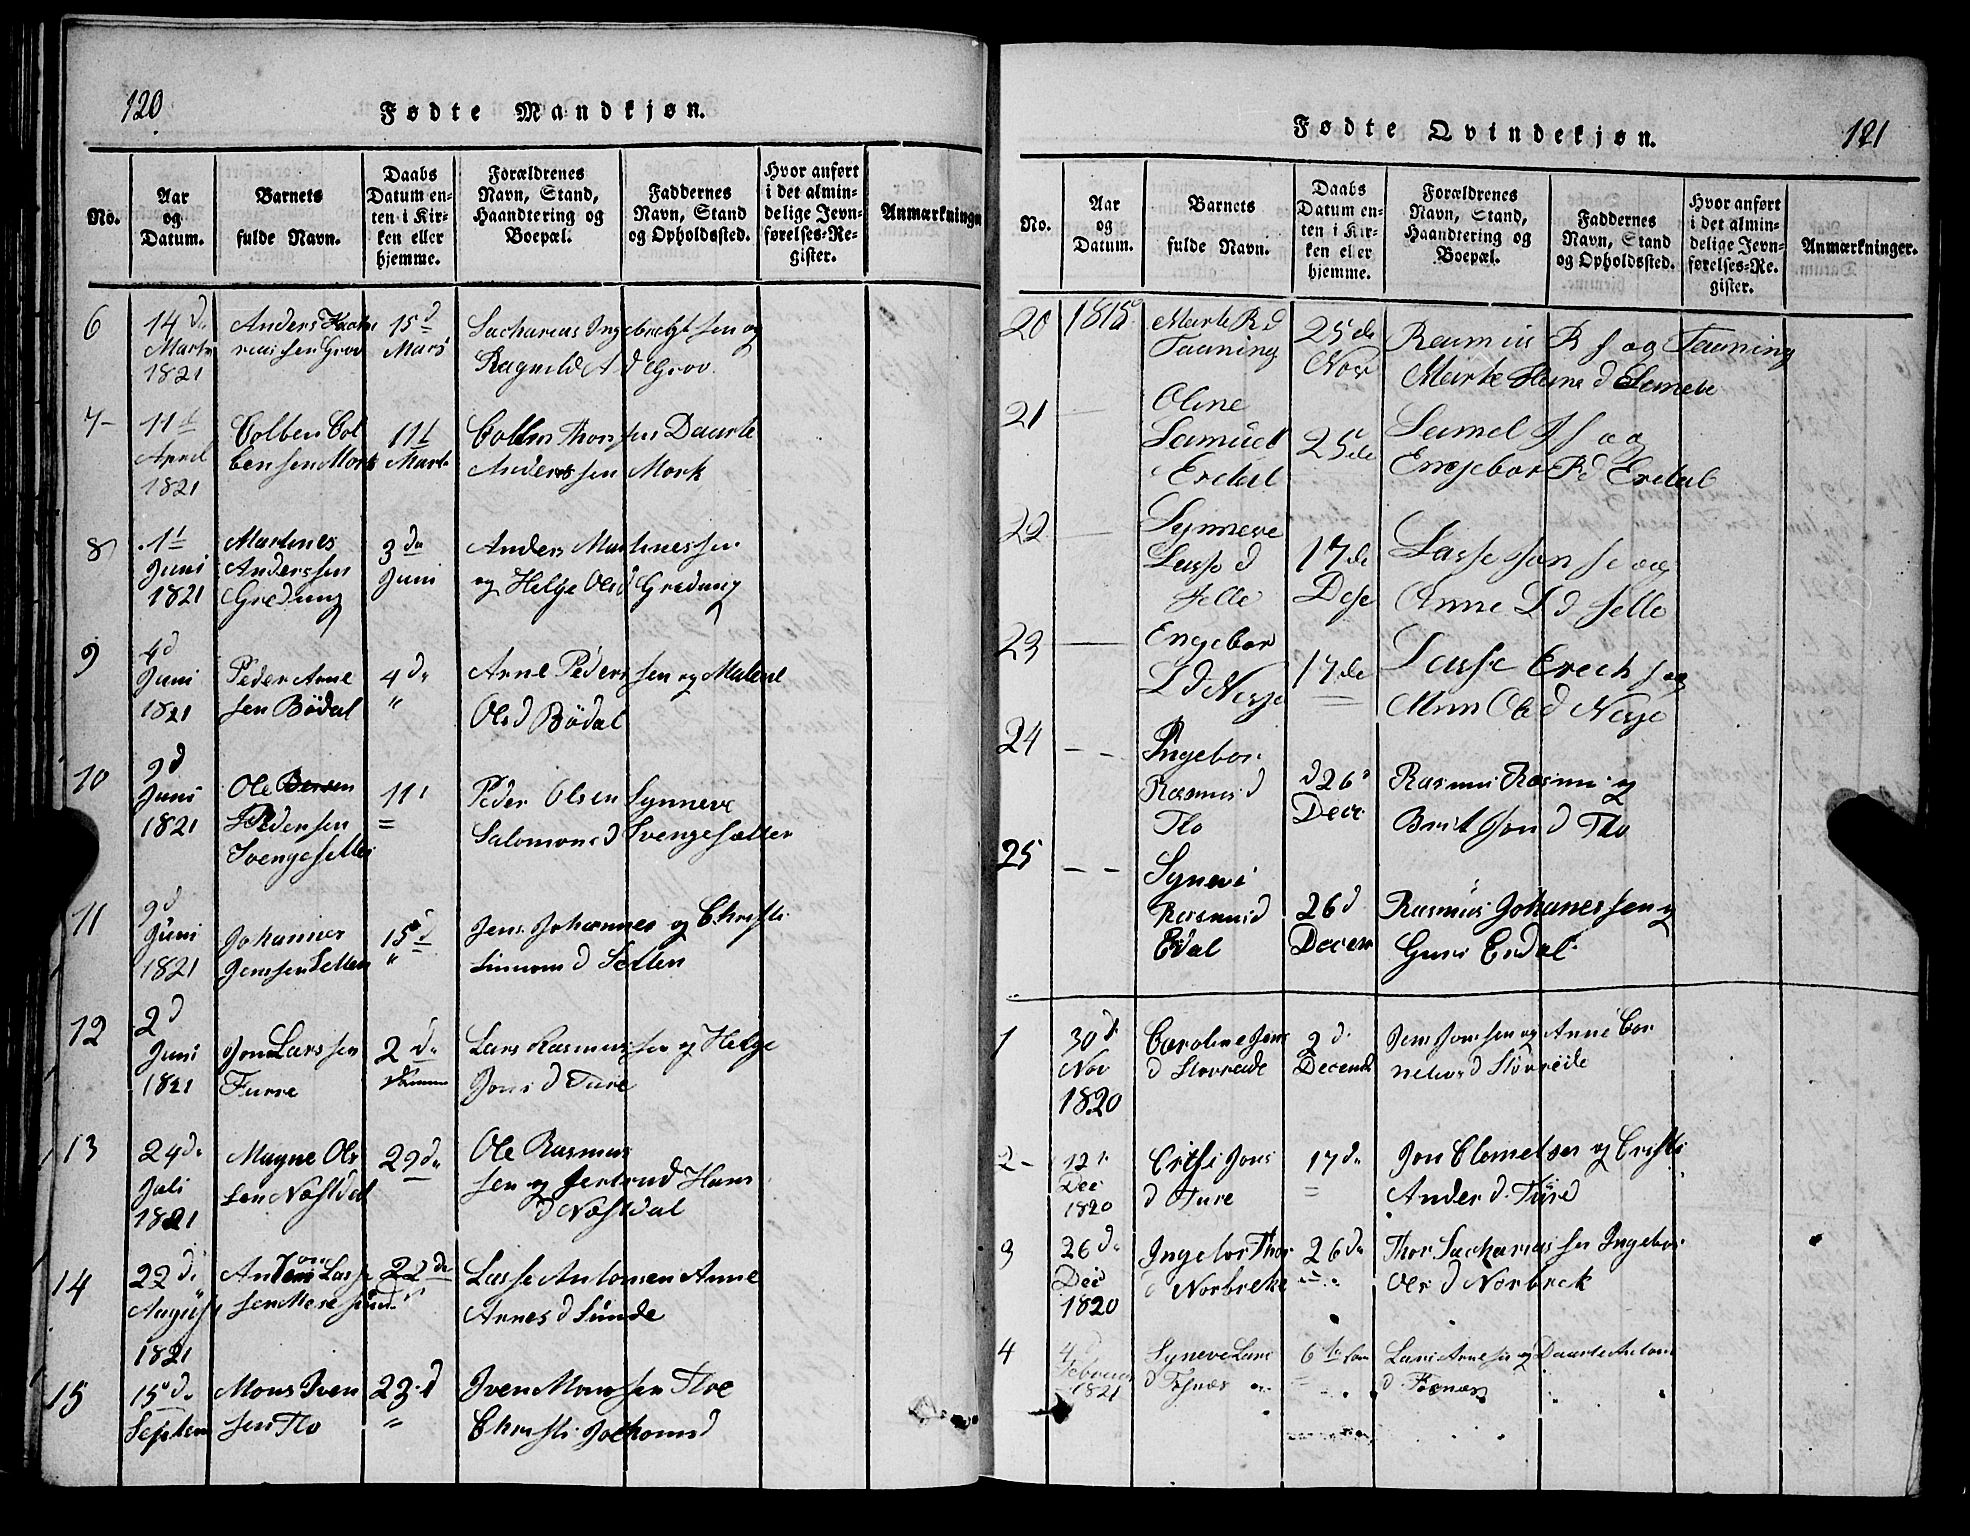 120
Fødte Mandkjøn.
No.
Aar
og
Datum.
Barnets
fulde Navn.
Daabs
Datum en-
ten i Kir-
ken eller
hjemme.
Forældrenes
Navn, Stand,
Haandtering og
Boepæl.
Faddernes
Navn, Stand
og Opholdssted.
Hvor anført
i det almin-
delige Jevn-
førelses-Re-
gister.
Anmærkninge
6
14 d.
Marts
1821
Anders
sen Grov
15 d
Mars
Sacharias Ingebregtsen og
Ragnild A d Grov
7-
11
April
1821
Colben Col
bensen Mork
11
Marts
Colben Thorsen Daarte
Anderssen Mork
8
1
Juni
1821
Martines
Anderssen
Gredung
3 da
Juni
Anders Martinessen
og Helge Ols d Gredung
9
4 d
Juni
1821
Peder Arne
sen Bödal
4 d.
"
Arne Pedersen og Malene
Ols d Bödal
10
9 d
Juni
1821
Ole
Pedersen
Svengesetter
11
=
Peder Olsen Synneve
Salomons d Svengesætter
11
9 d
Juni
1821
Johannes
Jenssen Setten
15 d
"
Jens Johannes og Christi
d Setten
12
2 d
Juni
1821
Jon Larssen
Furre
2 da
Lars Rasmussen og Helge
Jons d Fure
13
24 d.
Juli
1821
Magne Ols
sen Nøstdal
29 da
Ole Rasmus
sen og Jertrud Hans
d Nøstdal
14
22 d.
August
1821
Lasse
sen
22 da
Lasse Antonsen Anne
Arnes d Sunde
15
15 d.
Septem
Mons Iven
sen Flo
23 d
"
Iven Monssen Floe
Christi Jochoms d
Fødte Qvindekjøn.
121
No.
Aar
og
Datum.
Barnets
fulde Navn.
Daabs
Datum en-
ten i Kir-
ken eller
hjemme.
Forældrenes
Navn, Stand,
Haandtering og
Boepæl.
Faddernes
Navn, Stand
og Opholdssted.
Hvor anført
i det almin-
delige Jevn-
førelses-Re-
gister.
Anmærkninger.
20
1815
Marte R d
Tauning
25 de
Nov
Rasmus R s og Tauning
Marte d
21
Oline
Samuel
Erdal
25 de
Samel J s og
Engebor R d Erdal
22
Synneve
Lasse d
Jelle
17 de
Dese
Lasse Jon s og
Anne L d Jelle
23
Engebor
L d Nesje
17 de
Lasse Erech s og
Ole d Nesje
24
Ingebor
Rasmus d
Flo
d 26
Dece
Rasmus Rasmu og
Brit Jon d Flo
25
Synevi
Rasmus d
Edal
26 d
Decem
Rasmus Johanessen og
Guri Erdal
1
30 d
Nov
1820
Caroline Jens
d Storreide
2 d.
Decemb
Jens Jonssen og Anne Cor
nelius d Storreide
2-
12
Dec
1820
Jons
d Fure
17 da
=
Jon Clemetsen og Cristi
Anders d Fure
3
26 d.
Dec
1820
Ingebor Thor
d Norbreke
26 da
Thor Sachariassen Ingebor
Ols d Norbrek
4
4 d
Februar
1821
Syneve Lars
d Fosnæs
6
Lars Arnesen og Daarte Antons
d Fosnæs